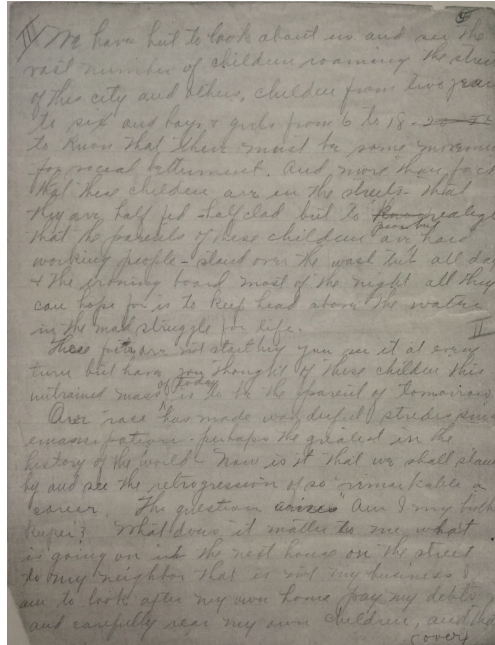 5
III We have but to look about us and see the
vast number of children roaming the street
of this city and others, children from two years
to six and boys & girls from 6 to 18
to know that there must be some movemen
for social betterment. And more than
that these children are in the streets that
they are half fed half clad but to realize
that the parents of these children are poor but hard
working people - stand over the wash tub all day
& the ironing board most of the night all they
can hope for is to keep head above the water
in the mad struggle for life.
II
These facts are not startling you see it at every
turn but have you thought of these children this
untrained mass of today is to be the parent of tomorrow
Our race has made wonderful strides since
emancipation - perhaps the greatest in the
history of the world - Now is it that we shall stand
by and see the retrogression of so remarkable a
career. The question arises "Am I my brother
keeper? What does it matter to me what
is going on in the next house on the street
to my neighbor that is not my business I
am to look after my own home pay my debts
and carefully rear my own children, and
(over)